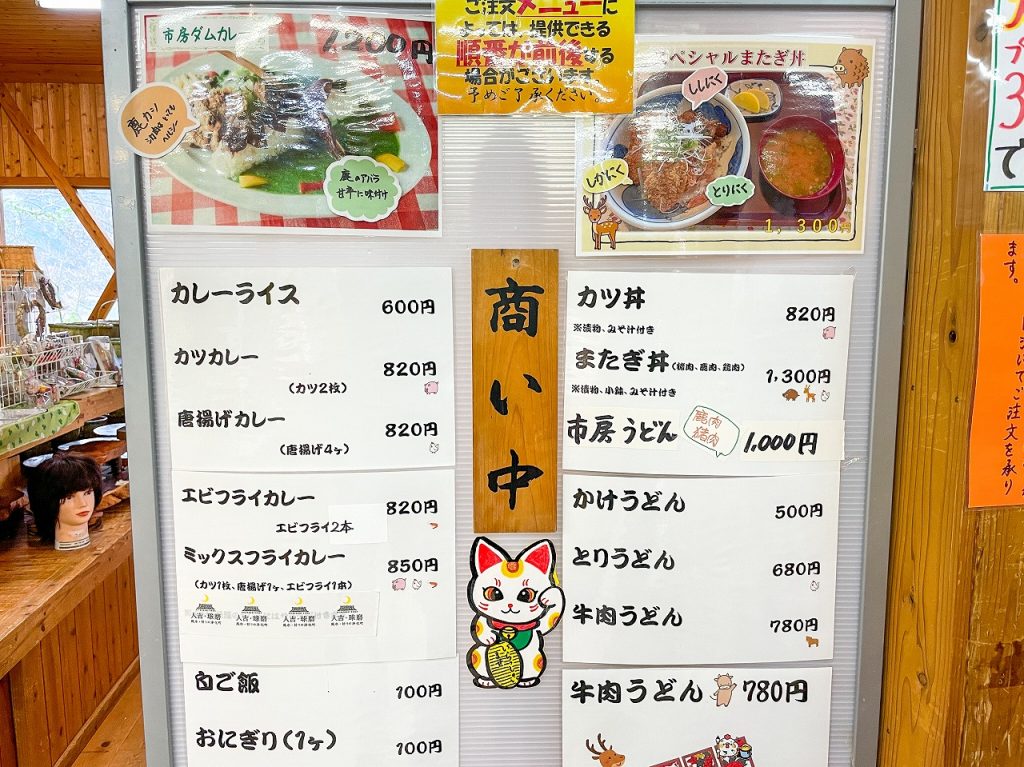 市房ダムカレー
1,200円
鹿のアバラ
甘辛に味付け
ご注文メニューに
よっては、提供できる
順番が前後する
場合がございます。
予めご了承ください。
スペシャルまたぎ丼
ししにく
しかにく
とりにく
1,300円
カレーライス 600円
カツカレー 820円
(カツ2枚)
唐揚げカレー 820円
(唐揚げ4ヶ)
エビフライカレー 820円
エビフライ2本
ミックスフライカレー 850円
(カツ1枚、唐揚げ1ヶ、エビフライ1本)
人吉・球磨 人吉・球磨 人吉・球磨 人吉・球磨
白ご飯 100円
おにぎり(1ヶ) 100円
商い中
カツ丼 820円
※漬物、みそ汁付き
またぎ丼(猪肉、鹿肉、鶏肉) 1,300円
※漬物、小鉢、みそ汁付き
市房うどん 鹿肉 猪肉 1,000円
かけうどん 500円
とりうどん 680円
牛肉うどん 780円
牛肉うどん 780円
ます。
てご注文を承り